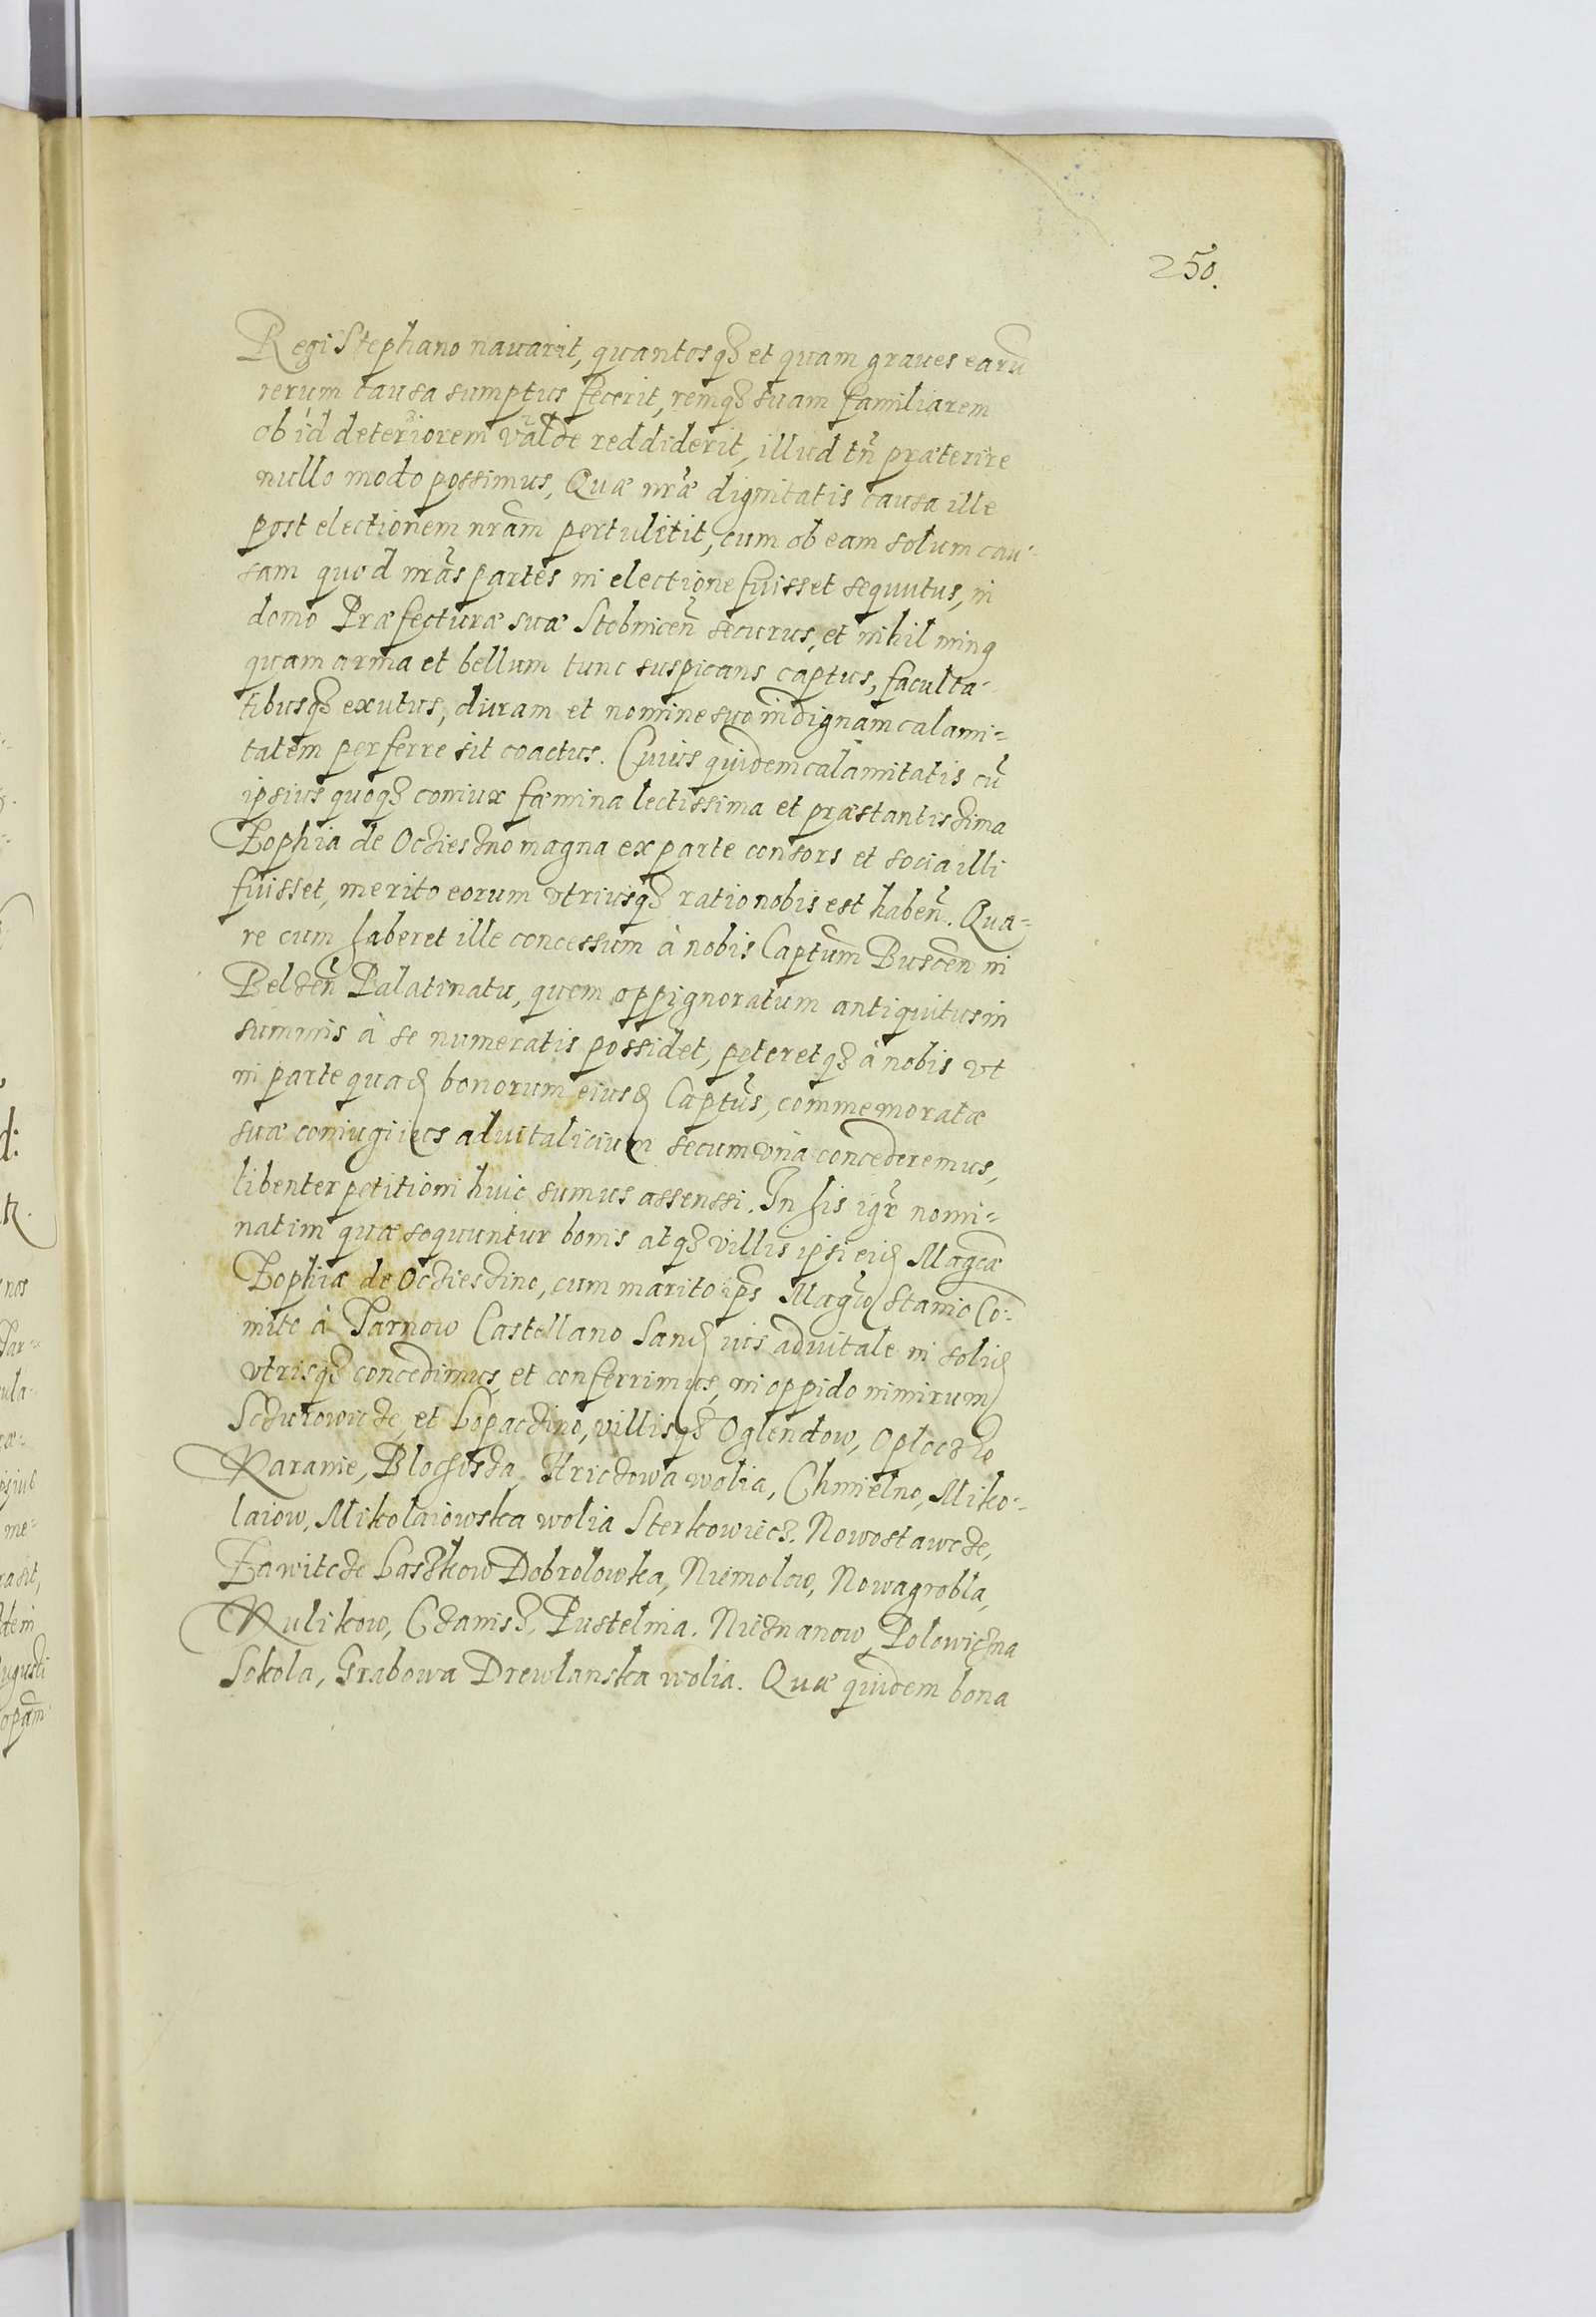 250.
Regi Stephano nauarit, quantosqꝫ et quam graues earū
rerum causa sumptus fecerit, remqꝫ suam familiarem
ob id deteriorem valde reddiderit, illud tñ præterire
nullo modo possimus, Quæ nræ dignitatis causa ille
post electionem nram pertulitit, cum ob eam solum cau-
sam quod nras partes in electione fuisset sequutus, in
domo Præfecturæ suæ Stobnicen̄ securus, et nihil ming
quam arma et bellum tunc suspicans captus, faculta-
tibusqꝫ exutus, duram et nomine suo indignam calami=
tatem perferre sit coactus. Cuius quidem calamitatis cū
ipsius quoqꝫ coniux fæmina lectissima et præstantissima
Zophia de Oczieszno magna ex parte consors et socia illi
fuisset, merito eorum vtriusqꝫ ratio nobis est haben̄. Qua=
re cum haberet ille concessum à nobis Captum Buscen in
Belzen̄ Palatinatu, quem oppignoratum antiquitus in
summis à se numeratis possidet, peteretqꝫ à nobis vt
in parte quad bonorum eiusd Captus, commemoratæ
suæ coniugi iecs aduitalicium secum vna concederemus,
libenter petitioni huic sumus assenssi. In his igr nomi=
natim quæ sequuntur bonis atqꝫ villis ipsi eid Magcæ
Zophiæ de Oczieszino, cum marito ips Magco Stanio Co-
mite à Tarnow Castellano Sand ius aduitale in solid
vtrisqꝫ concedimus, et conferrimus, in oppido nimirum
Szczurowicze, et Lopaczino, villisqꝫ Oglendow, Oploczko
Raranie, Blochusza, Hriczowa wolia, Chmielno, Miko-
laiow, Mikolaiowska wolia Sterkowiecz. Nowostawcze,
Zawitcze Laszkow Dobrolowka, Niemolow, Nowagrobla,
Rulikow, Czanisz, Pustelnia. Nieznanow, Polowiczna
Sokola, Grabowa Drewlanska wolia. Quæ quidem bona